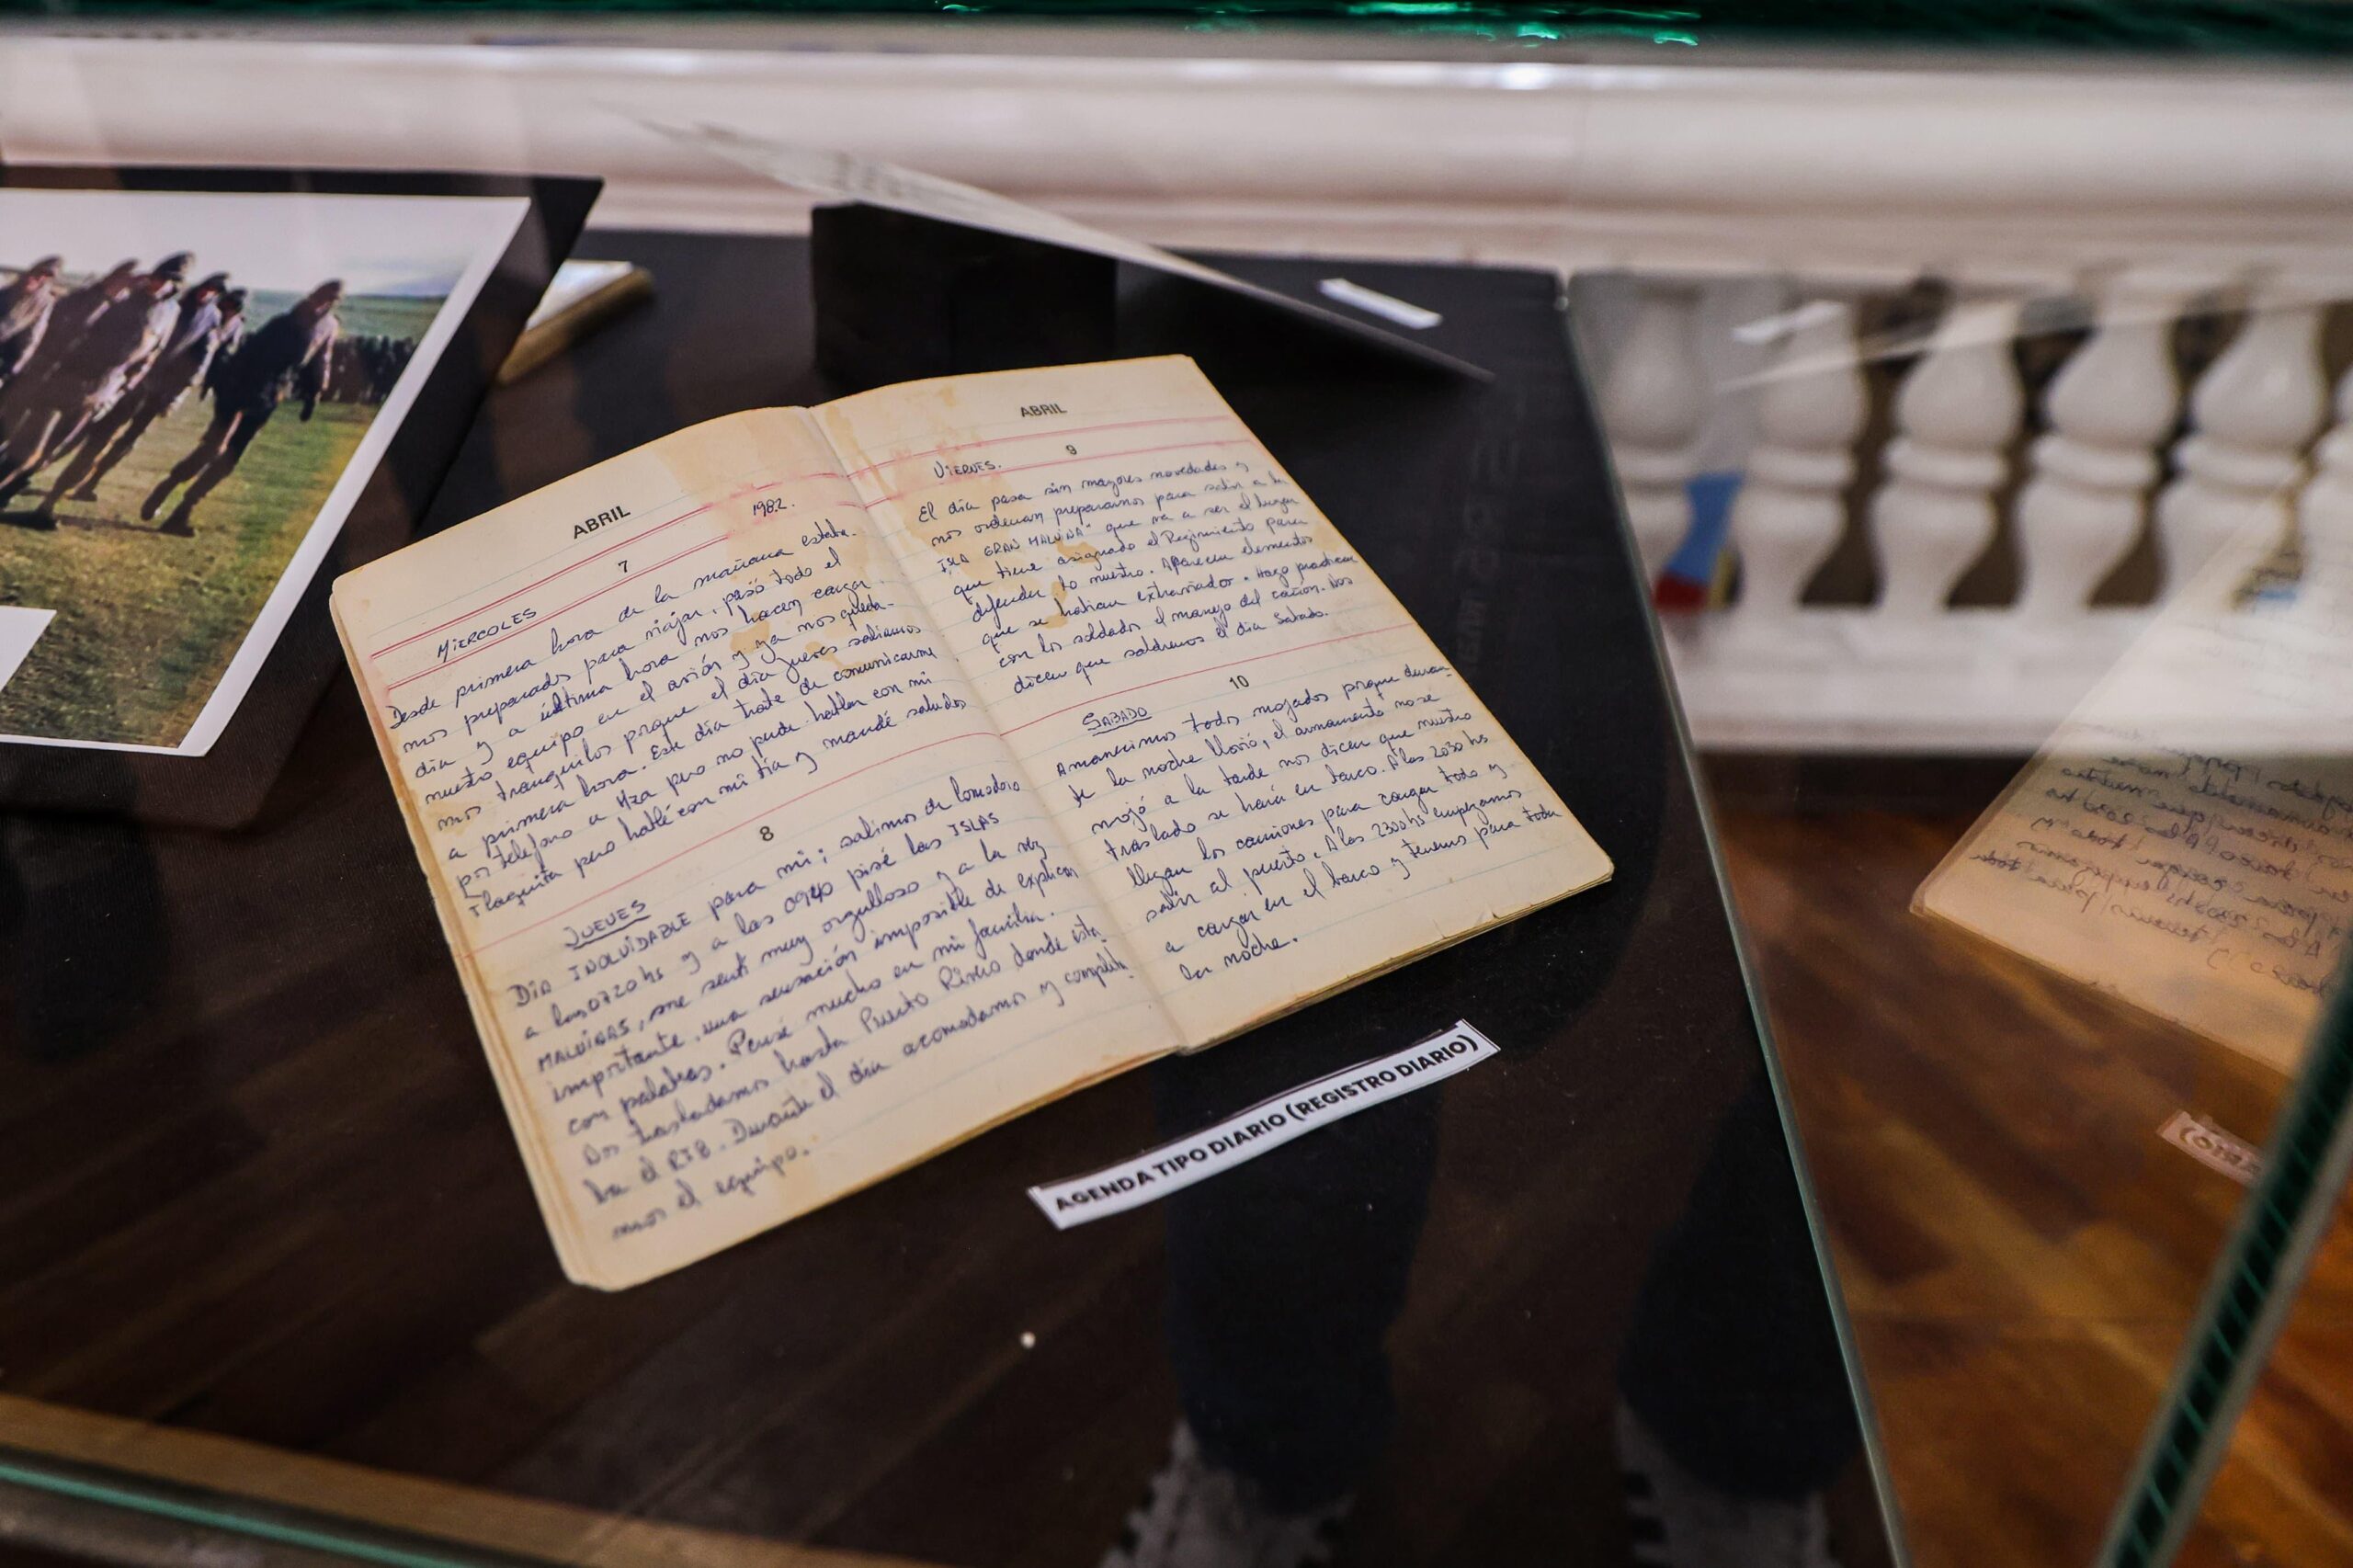 ABRIL
7
1982.
MIERCOLES
Desde primera hora de la mañana estába-
mos preparados para viajar, pasó todo el
día y a última hora nos hacen cargar
nuestro equipo en el avión y ya nos queda-
mos tranquilos porque el día jueves saliamos
a primera hora. Este día traté de comunicarme
por teléfono a Mza pero no pude hablar con mi
flaquita pero hablé con mi tía y mandé saludos
8
JUEVES
DIA INOLVIDABLE para mi; salimos de Comodoro
a las 0720 hs y a las 0940 pisé las ISLAS
MALVINAS, me sentí muy orgulloso y a la vez
importante, una sensación imposible de explicar
con palabras. Pensé mucho en mi familia.
Nos trasladamos hasta Puerto Rivero donde esta-
ba el RI8. Durante el día acomodamos y completa-
mos el equipo.
ABRIL
9
VIERNES.
El día pasa sin mayores novedades y
nos ordenan prepararnos para salir a la
ISLA GRAN MALVINA" que va a ser el lugar
que tiene asignado el Regimiento para
defender lo nuestro. Aparecen elementos
que se habian extraviados. Hago practicar
con los soldados el manejo del cañon. Nos
dicen que saldremos el día Sabado.
10
SABADO
Amanecimos todos mojados porque duran-
te la noche llovió, el armamento no se
mojó a la tarde nos dicen que nuestro
traslado se hará en barco. A las 2030 hs
llegan los camiones para cargar todo y
salir al puerto. A las 2300 hs empezamos
a cargar en el barco y tenemos para toda
la noche.
AGENDA TIPO DIARIO (REGISTRO DIARIO)